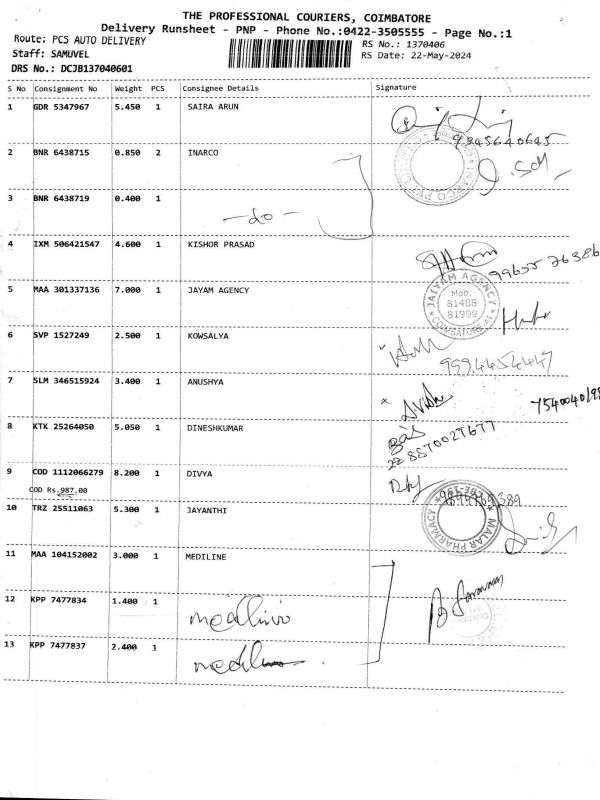 THE PROFESSIONAL COURIERS, COIMBATORE
Delivery Runsheet - PNP - Phone No.:0422-3505555 - Page No.:1
Route: PCS AUTO DELIVERY
RS No.: 1370406
Staff: SAMUVEL
RS Date: 22-May-2024
DRS No.: DCJB137040601
S No Consignment No Weight PCS Consignee Details Signature
1 GDR 5347967 5.450 1 SAIRA ARUN
9345640645
2 BNR 6438715 0.850 2 INARCO
3 BNR 6438719 0.400 1
-do-
4 IXM 506421547 4.600 1 KISHOR PRASAD
99655 76386
5 MAA 301337136 7.000 1 JAYAM AGENCY
JAIYAM AGENCY
Mob:
81488
81999
COIMBATORE
6 SVP 1527249 2.500 1 KOWSALYA
9994454447
7 SLM 346515924 3.400 1 ANUSHYA
8 KTK 25264050 5.050 1 DINESHKUMAR
9 COD 1112066279 8.200 1 DIVYA
COD Rs.987.00
10 TRZ 25511063 5.300 1 JAYANTHI
MALAR PHARMACY
11 MAA 104152002 3.000 1 MEDILINE
12 KPP 7477834 1.400 1
13 KPP 7477837 2.400 1